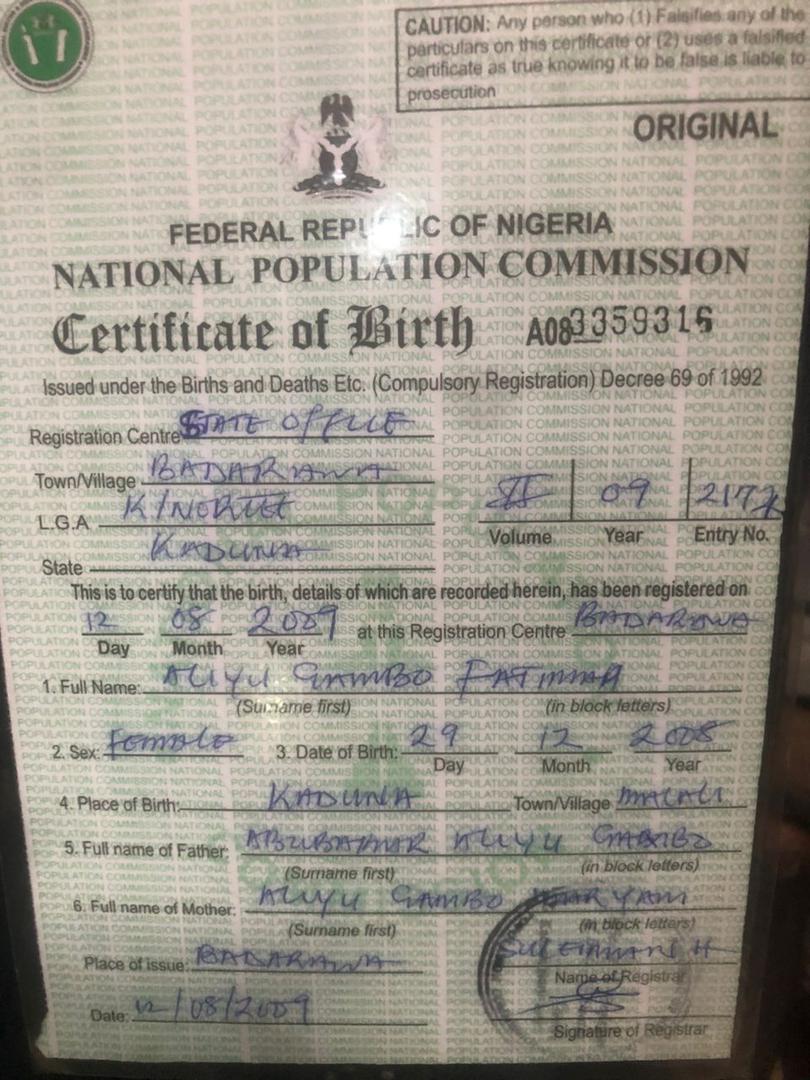 CAUTION: Any person who (1) Falsifies any of the
particulars on this certificate or (2) uses a falsified
certificate as true knowing it to be false is liable to
prosecution
ORIGINAL
FEDERAL REPUBLIC OF NIGERIA
NATIONAL POPULATION COMMISSION
Certificate of Birth A083359316
Issued under the Births and Deaths Etc. (Compulsory Registration) Decree 69 of 1992
Registration Centre STATE OFFICE
Town/Village BADARAWA
L.G.A K/NORTH
State KADUNA
II 09
Volume Year Entry No.
This is to certify that the birth, details of which are recorded herein, has been registered on
12 08 2009 at this Registration Centre BADARAWA
Day Month Year
1. Full Name: ALIYU GAMBO FATIMAH
(Surname first) (in block letters)
2. Sex: Female 3. Date of Birth: 29 12 2008
Day Month Year
4. Place of Birth: KADUNA Town/Village MALALI
5. Full name of Father: ABUBAKAR ALIYU GAMBO
(Surname first) (in block letters)
6. Full name of Mother: ALIYU GAMBO MARYAM
(Surname first) (in block letters)
Place of issue: BADARAWA SULEIMAN H
Name of Registrar
Date: 12/08/2009
Signature of Registrar